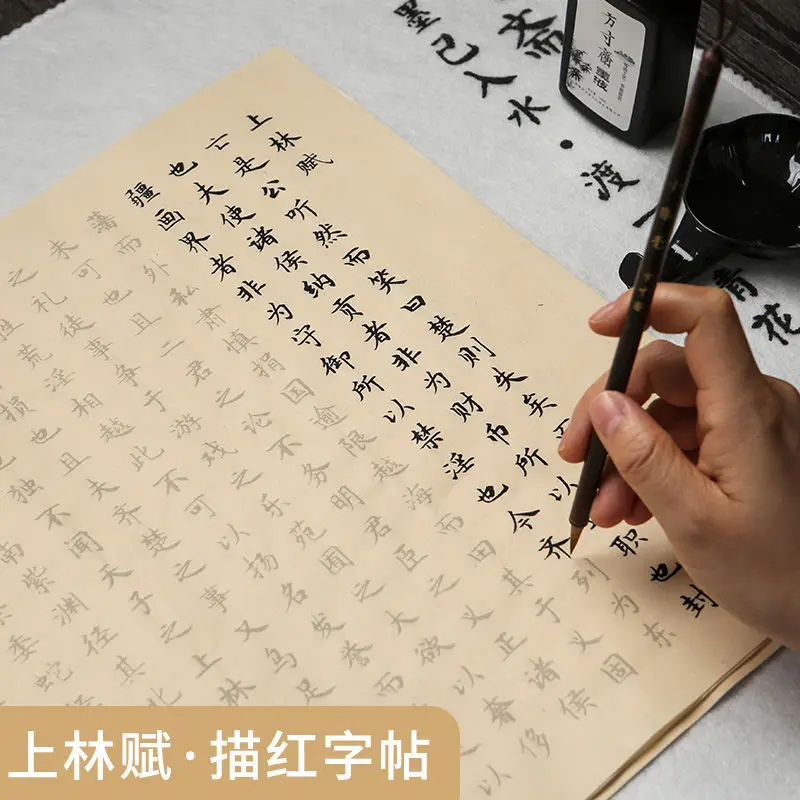 斋
墨已入水·渡一
青花
方寸斋
墨液
上林赋
亡是公听然而笑曰楚则失矣而
也夫使诸侯纳贡者非为财币所以职也封
疆画界者非为守御所以禁淫也今齐列为东
藩而外私肃慎捐国逾限越海而田其于义固
未可也且二君之论不务明君臣之义正诸侯
之礼徒事争于游戏之乐苑囿之大欲以奢侈
胜荒淫相越此不可以扬名发誉而以
损也且夫齐楚之事又乌足
也独不闻天子之上林
南紫渊径其北
委蛇
上林赋·描红字帖